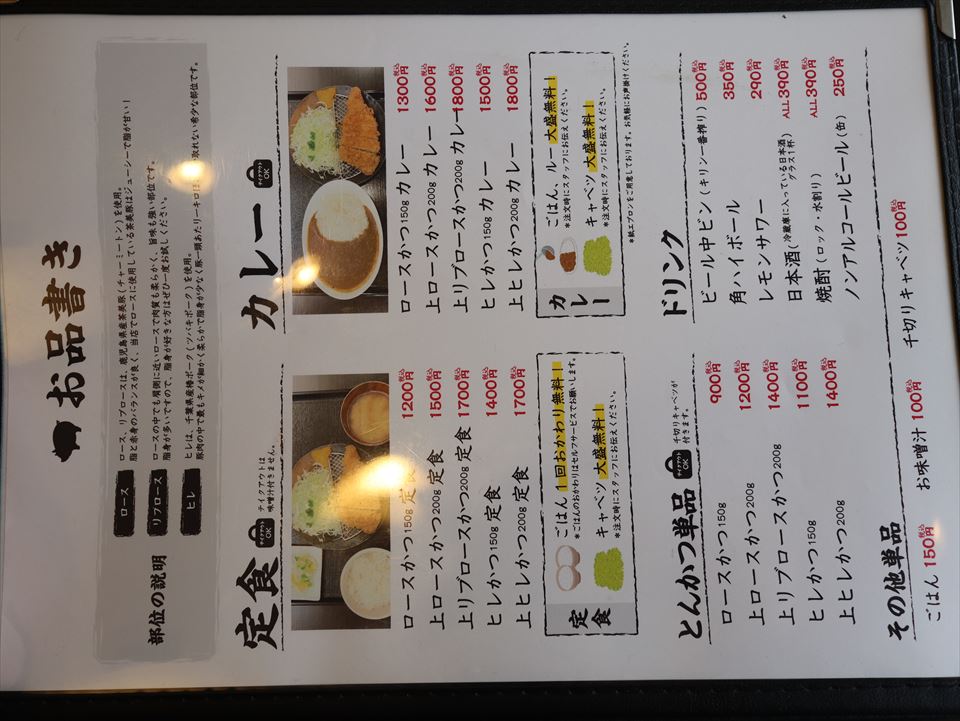 お品書き
部位の説明
ロース
ロース、リブロースは、鹿児島県産茶美豚(チャーミートン)を使用。
脂と赤身のバランスが良く、当店でロースに使用している茶美豚はジューシーで脂が甘い!
リブロース
ロースの中でも肩側に近いロースで肉質も柔らかく、旨味も強い部位です。
脂身が多いですので、脂身が好きな方はぜひ一度お試しください。
ヒレ
ヒレは、千葉県産椿ポーク(ツバキポーク)を使用。
豚肉の中で最もキメが細かく柔らかで脂身が少なく豚一頭あたり一キロほ 取れない希少な部位です。
定食
テイクアウトOK
テイクアウトは
味噌汁付きません。
ロースかつ150g 定食 1200円税込
上ロースかつ200g 定食 1500円税込
上リブロースかつ200g 定食 1700円税込
ヒレかつ150g 定食 1400円税込
上ヒレかつ200g 定食 1700円税込
定食
ごはん 1回おかわり無料!
*ごはんのおかわりはセルフサービスでお願いします。
キャベツ 大盛無料!
*注文時にスタッフにお伝えください。
カレー
テイクアウトOK
ロースかつ150g カレー 1300円税込
上ロースかつ200g カレー 1600円税込
上リブロースかつ200g カレー 1800円税込
ヒレかつ150g カレー 1500円税込
上ヒレかつ200g カレー 1800円税込
カレー
ごはん、ルー 大盛無料!
*注文時にスタッフにお伝えください。
キャベツ 大盛無料!
*注文時にスタッフにお伝えください。
*紙エプロンをご用意しております。お気軽にお声掛けください。
とんかつ単品
テイクアウトOK
千切りキャベツが
付きます。
ロースかつ150g 900円税込
上ロースかつ200g 1200円税込
上リブロースかつ200g 1400円税込
ヒレかつ150g 1100円税込
上ヒレかつ200g 1400円税込
ドリンク
ビール中ビン(キリン一番搾り) 500円税込
角ハイボール 350円税込
レモンサワー 290円税込
日本酒(冷蔵庫に入っている日本酒 グラス1杯) ALL390円税込
焼酎(ロック・水割り) ALL390円税込
ノンアルコールビール(缶) 250円税込
その他単品
ごはん 150円税込 お味噌汁 100円税込 千切りキャベツ 100円税込